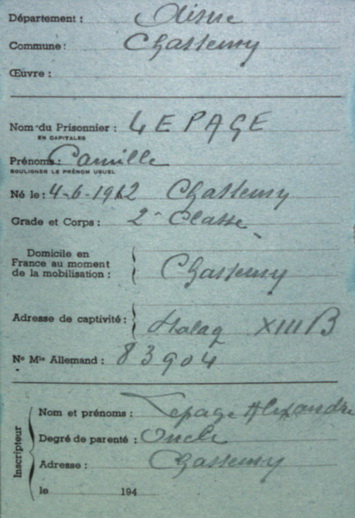 Département : Aisne
Commune : Chassemy
Œuvre :
Nom du Prisonnier : LEPAGE
EN CAPITALES
Prénoms : Camille
SOULIGNER LE PRÉNOM USUEL
Né le : 4-6-1912 Chassemy
Grade et Corps : 2e Classe
Domicile en
France au moment
de la mobilisation : Chassemy
Adresse de captivité : Stalag XIII B
No Mle Allemand : 83904
Inscripteur
Nom et prénoms : Lepage Alexandre
Degré de parenté : Oncle
Adresse : Chassemy
le 194